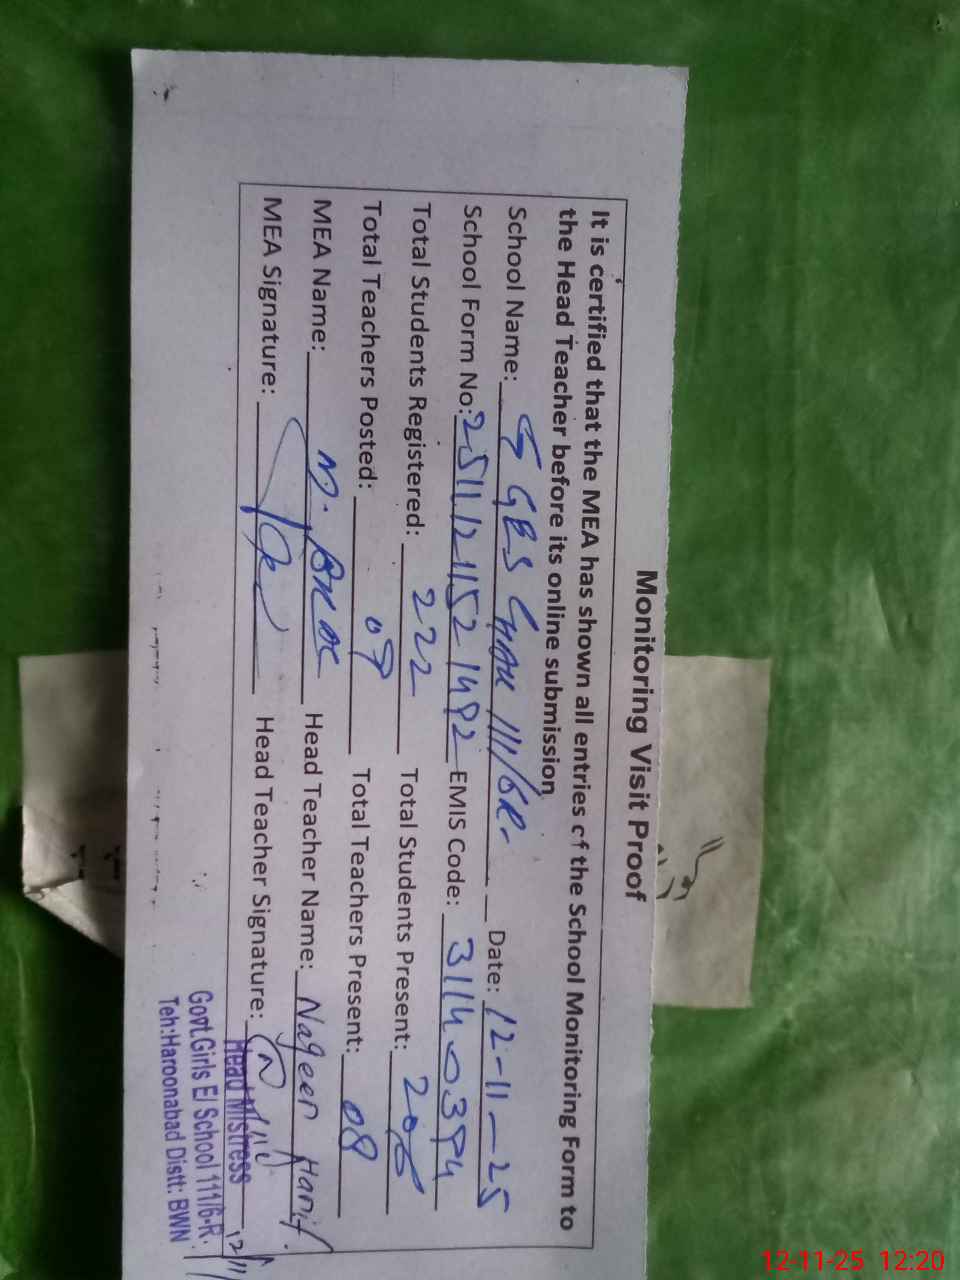 Monitoring Visit Proof
It is certified that the MEA has shown all entries of the School Monitoring Form to
the Head Teacher before its online submission
School Name: GGES Chak 111/6R- Date: 12-11-25
School Form No: 25111211521492 EMIS Code: 31140394
Total Students Registered: 222 Total Students Present: 206
Total Teachers Posted: 09 Total Teachers Present: 08
MEA Name: M. Head Teacher Name: Nageen Hanif.
MEA Signature: Head Teacher Signature:
12/11
Head Mistress
Govt.Girls E/ School 111/6-R.
Teh:Haroonabad Distt: BWN
12-11-25 12:20